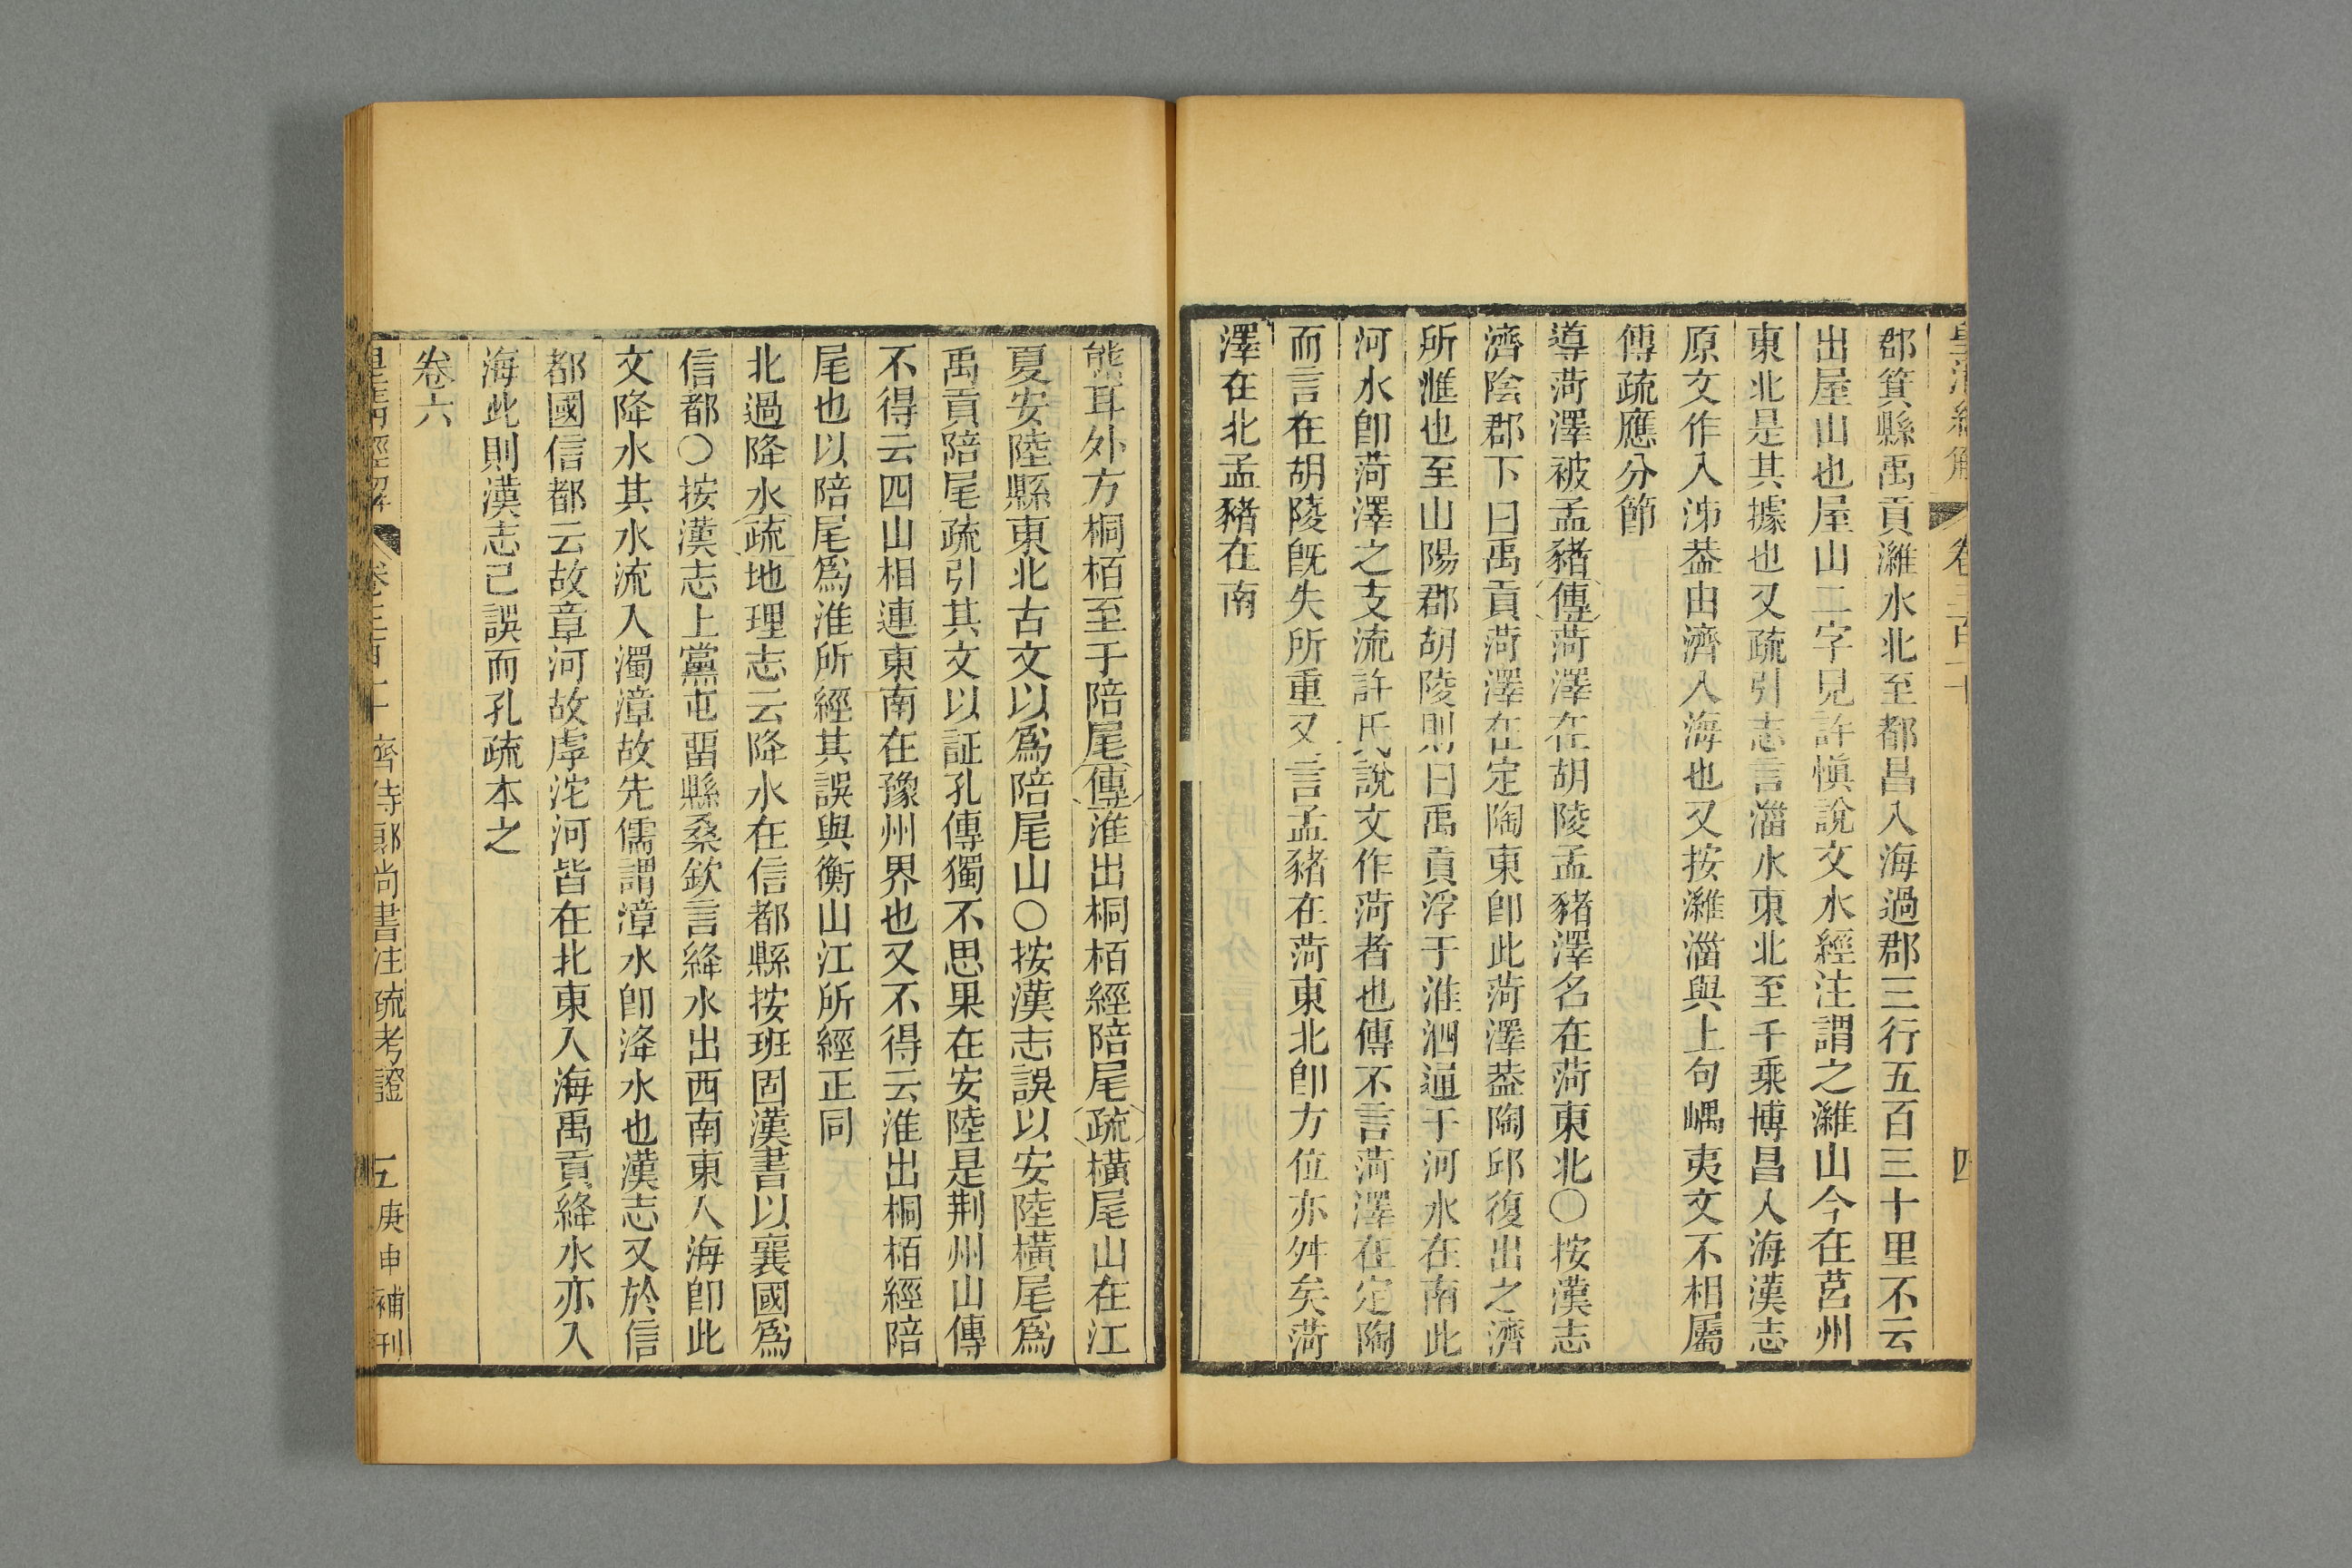 皇清經解 卷三百十 四
郡箕縣禹貢濰水北至都昌入海過郡三行五百三十里不云
出屋山也屋山二字見許愼說文水經注謂之濰山今在莒州
東北是其據也又疏引志言淄水東北至千乘博昌入海漢志
原文作入泲葢由濟入海也又按濰淄與上句嵎夷文不相屬
傳疏應分節
導菏澤被孟豬傳菏澤在胡陵孟豬澤名在菏東北○按漢志
濟陰郡下曰禹貢菏澤在定陶東卽此菏澤葢陶邱復出之濟
所滙也至山陽郡胡陵則曰禹貢浮于淮泗通于河水在南此
河水卽菏澤之支流許氏說文作菏者也傳不言菏澤在定陶
而言在胡陵旣失所重又言孟豬在菏東北卽方位亦舛矣菏
澤在北孟豬在南
熊耳外方桐栢至于陪尾傳淮出桐栢經陪尾疏橫尾山在江
夏安陸縣東北古文以爲陪尾山○按漢志誤以安陸橫尾爲
禹貢陪尾疏引其文以証孔傳獨不思果在安陸是荆州山傳
不得云四山相連東南在豫州界也又不得云淮出桐栢經陪
尾也以陪尾爲淮所經其誤與衡山江所經正同
北過降水疏地理志云降水在信都縣按班固漢書以襄國爲
信都○按漢志上黨屯畱縣桑欽言絳水出西南東入海卽此
文降水其水流入濁漳故先儒謂漳水卽洚水也漢志又於信
都國信都云故章河故虖沱河皆在北東入海禹貢絳水亦入
海此則漢志已誤而孔疏本之
卷六
皇淸經解 卷三百十 齊侍郞尚書注疏考證 五 庚申補刊